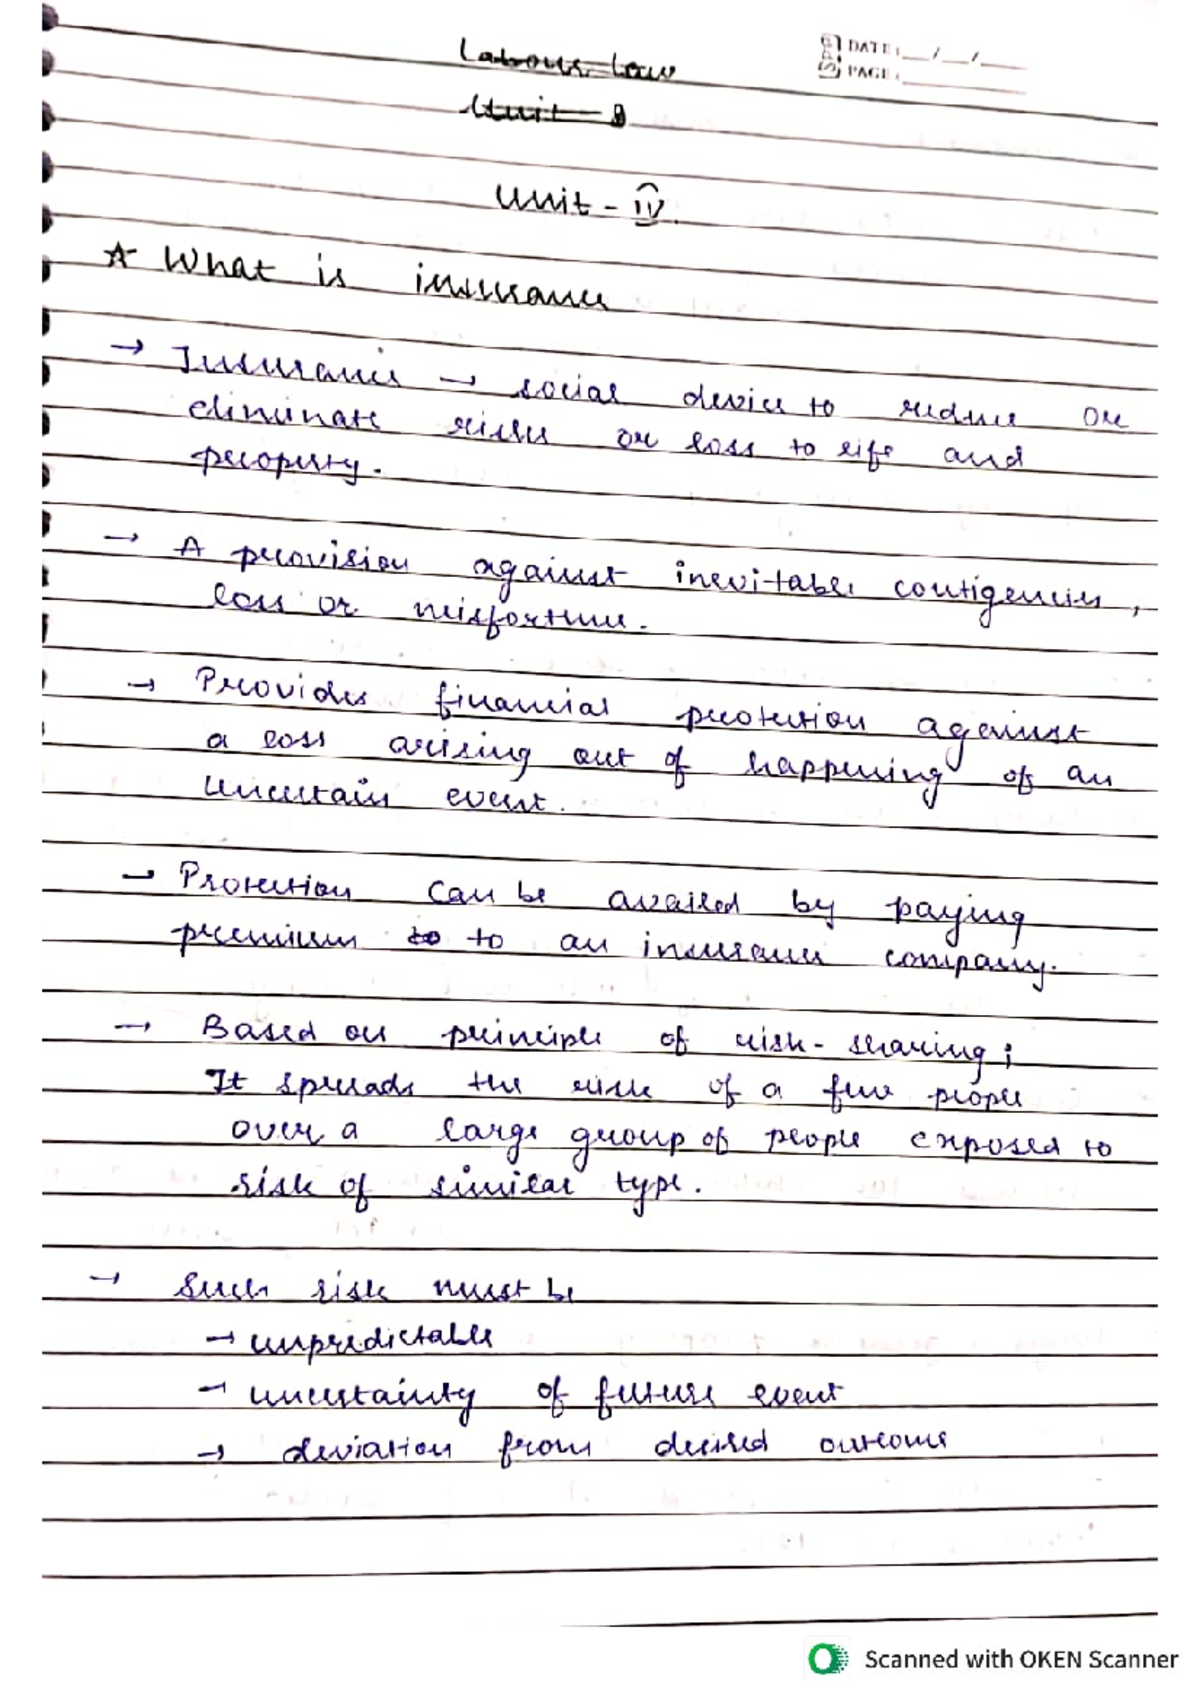 Labour Law
DATE: __/__/__
PAGE:
Unit - I
Unit - IV
☆ What is insurance
→ Insurance → social device to reduce or
eliminate risks or loss to life and
property.
→ A provision against inevitable contigencies,
loss or misfortune.
→ Provides financial protection against
a loss arising out of happening of an
uncertain event.
→ Protection can be availed by paying
premium to to an insurance company.
→ Based on principle of risk-sharing;
It spreads the risk of a few people
over a large group of people exposed to
risk of similar type.
→ Such risk must be
→ unpredictable
→ uncertainty of future event
→ deviation from desired outcome
Scanned with OKEN Scanner